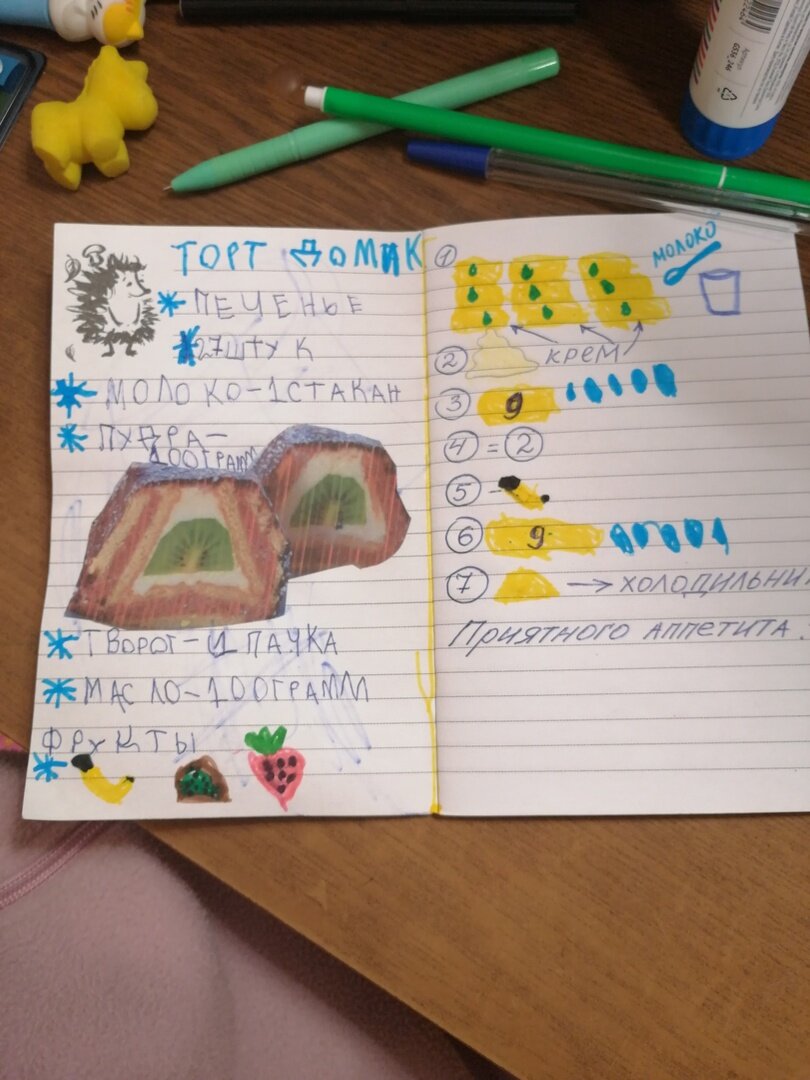 ТОРТ ДОМИК
* ПЕЧЕНЬЕ
* 27 ШТУК
* МОЛОКО-1 СТАКАН
* ПУДРА-
100 ГРАММ
* ТВОРОГ-1 ПАЧКА
* МАСЛО-100 ГРАММ
ФРУКТЫ
*
1
МОЛОКО
КРЕМ
2
3 9
4 = 2
5 -
6 9
7 → ХОЛОДИЛЬНИ
ПРИЯТНОГО АППЕТИТА.